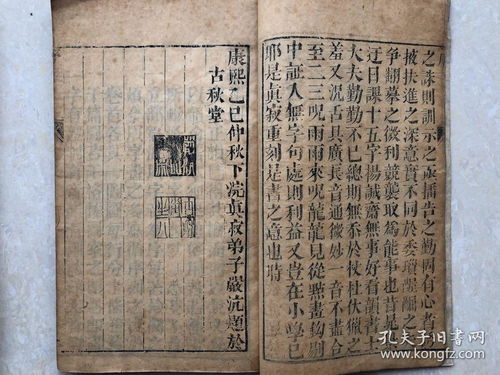 之誅則訓示之
播告之
因有心者
披扶進之深意實不同於委瑣
之
爭翻摹之微利競襲取爲能事也昔
迂日課十五字楊誠齋無事好看韻書士
大夫勤勤不已總期無忝於杖杜伏獵之
羞又況舌具廣長音通微妙一音不盡合
至二三呪雨雨來呪龍龍見從點畫鈎剔
中証入無字句處則利益又豈在小學已
耶是眞寂重刻是書之意也時
康熙乙巳仲秋下浣眞寂弟子嚴沆題於
古秋堂
孔夫子旧书网
www.kongfz.com